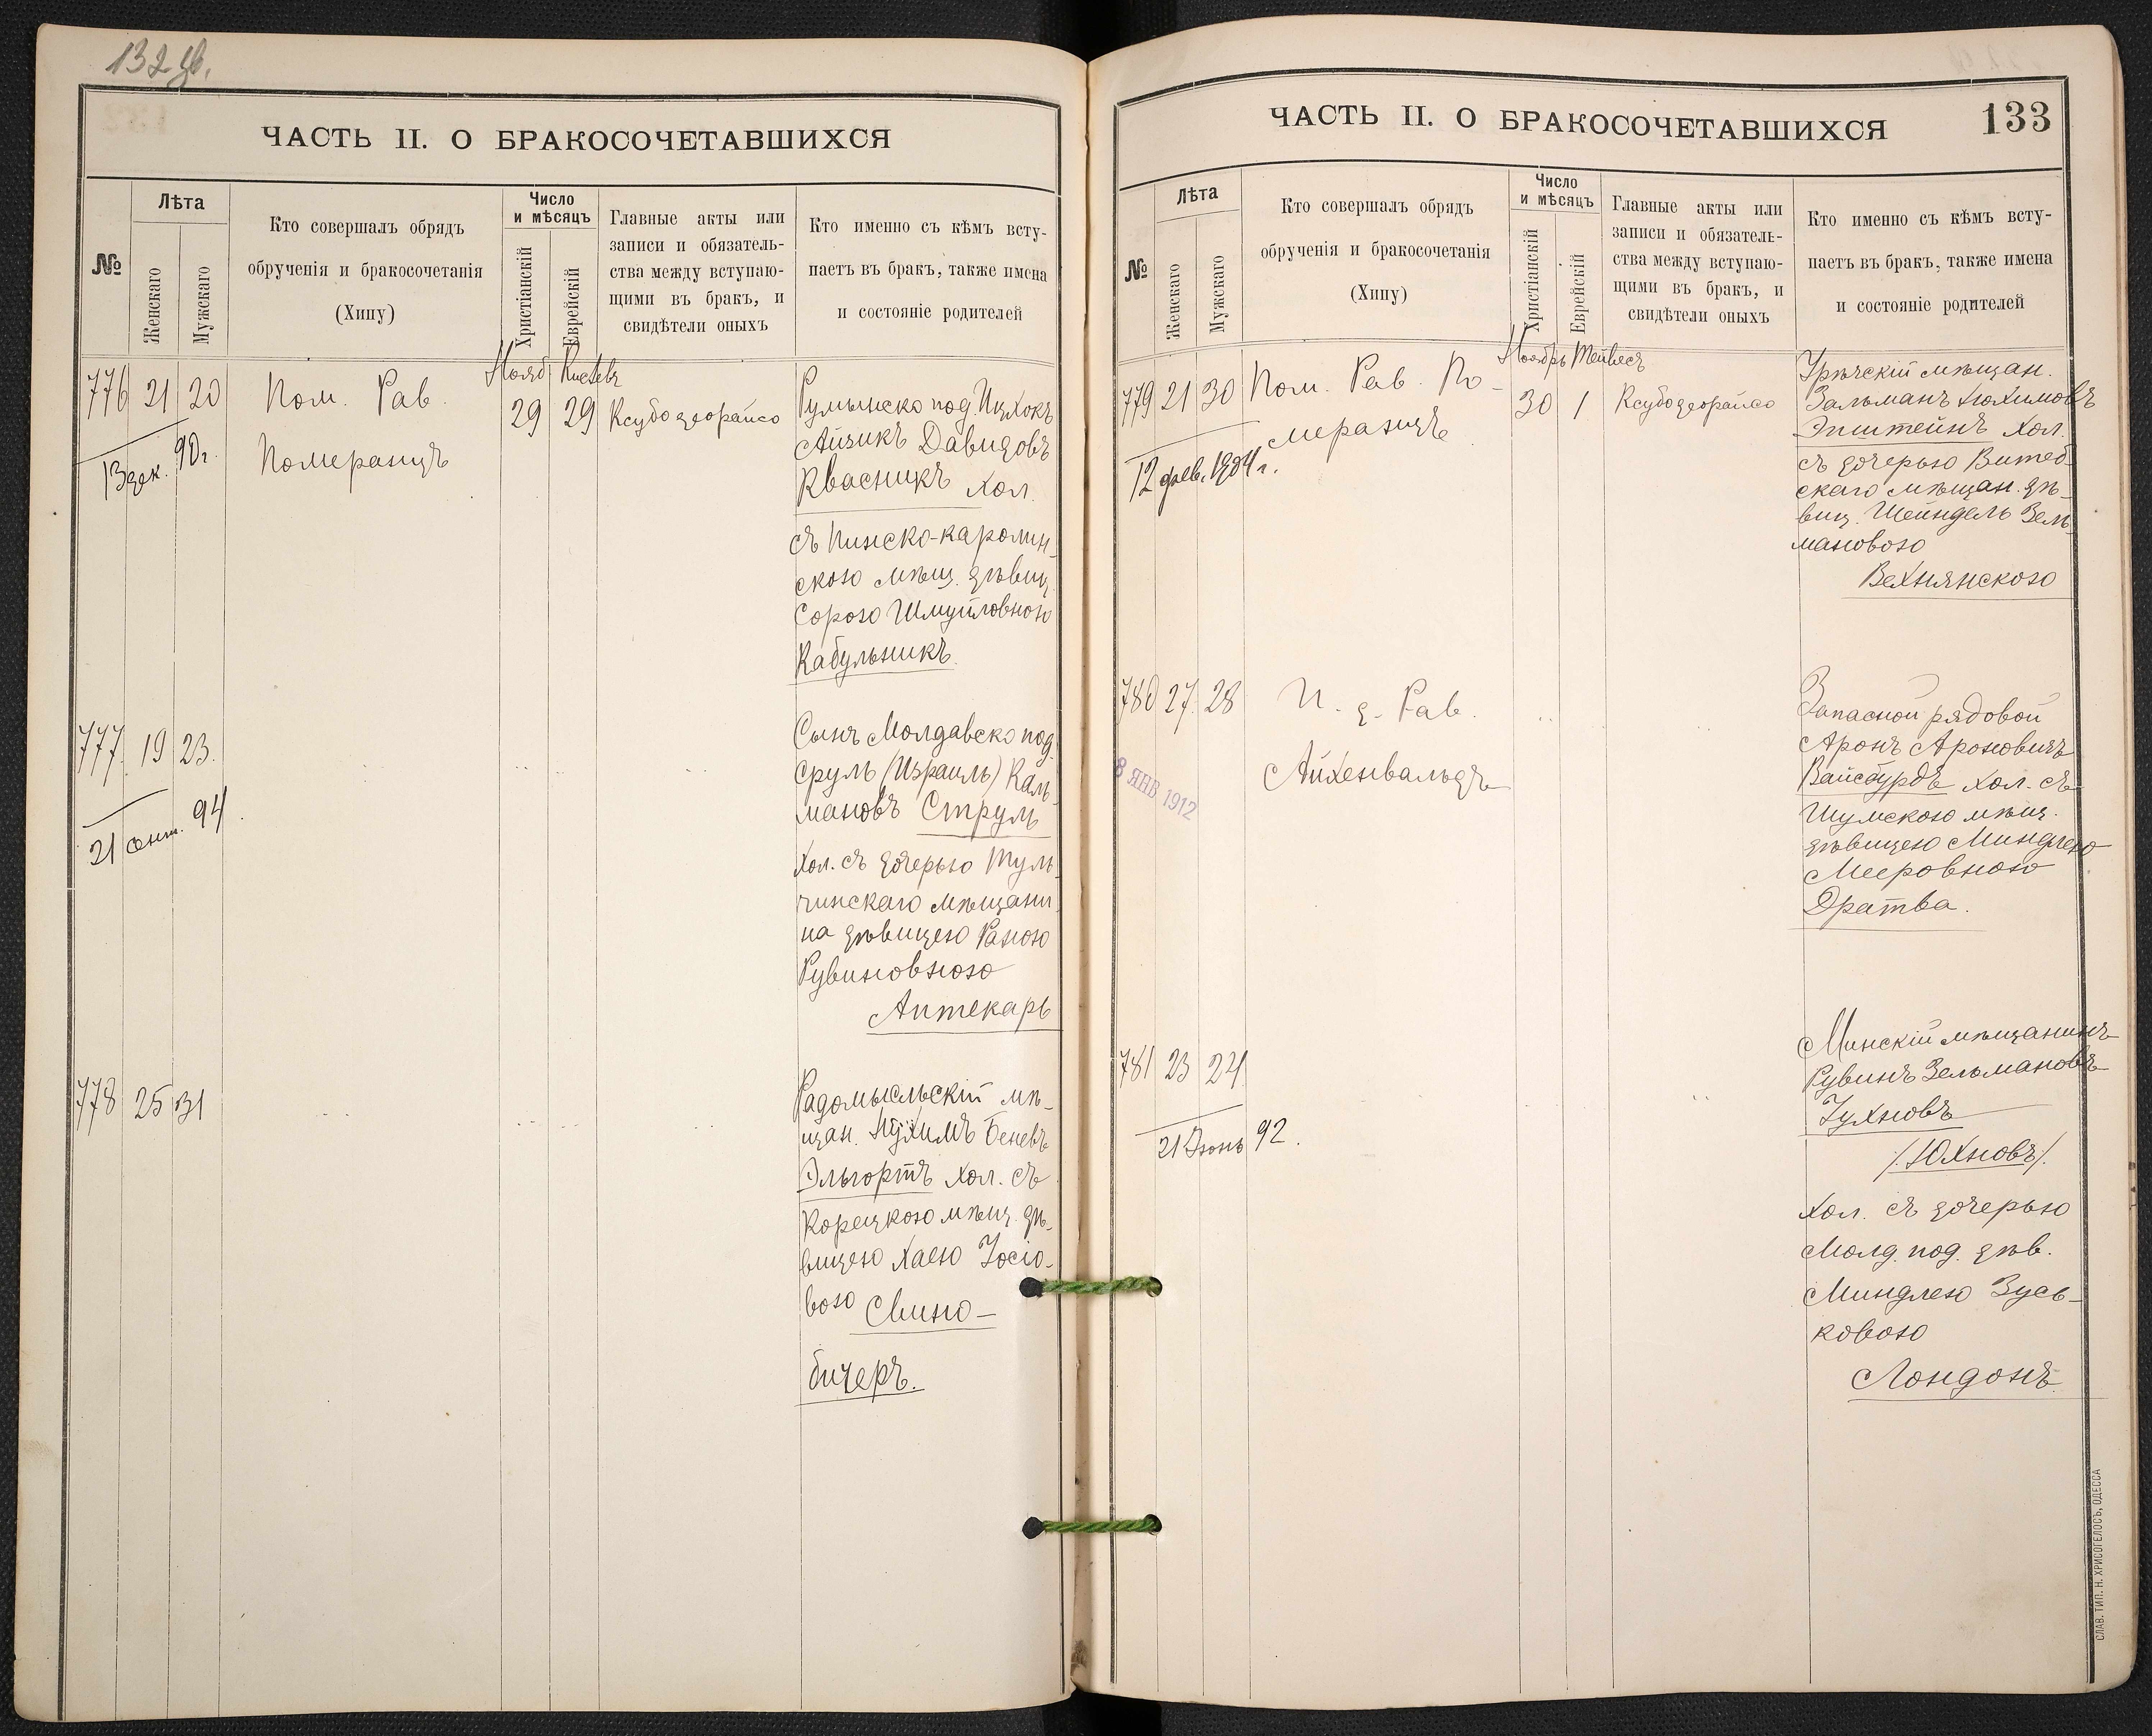 132 об.
ЧАСТЬ II. О БРАКОСОЧЕТАВШИХСЯ
№
Лѣта
Женскаго
Мужскаго
Кто совершалъ обрядъ
обрученія и бракосочетанія
(Хипу)
Число
и мѣсяцъ
Христіанскій
Еврейскій
Главные акты или
записи и обязатель-
ства между вступаю-
щими въ бракъ, и
свидѣтели оныхъ
Кто именно съ кѣмъ всту-
паетъ въ бракъ, также имена
и состояніе родителей
776 21 20
13 дек. 90 г.
Пом. Рав.
Померанцъ
Нояб Кислевъ
29 29
Ксубо деорайсо
Румынско под. Ицхокъ
Айзикъ Давидовъ
Квасникъ хол.
съ Пинско-каролин-
скою мѣщ. дѣвиц.
Сорою Шмуйловною
Кабульникъ.
777. 19 23.
21 сент. 94.
Сынъ Молдавско под.
Сруль (Израиль) Каль-
мановъ Струль
хол. съ дочерью Туль-
чинскаго мѣщани-
на дѣвицею Раною
Рувиновною
Аптекарь
778 25 31
Радомысльскій мѣ-
щан. Нухимъ Беневъ
Эльгортъ хол. съ
Корецкою мѣщ. дѣ-
вицею Хаею Іосіо-
вою Свино-
бичеръ.
ЧАСТЬ II. О БРАКОСОЧЕТАВШИХСЯ
133
№
Лѣта
Женскаго
Мужскаго
Кто совершалъ обрядъ
обрученія и бракосочетанія
(Хипу)
Число
и мѣсяцъ
Христіанскій
Еврейскій
Главные акты или
записи и обязатель-
ства между вступаю-
щими въ бракъ, и
свидѣтели оныхъ
Кто именно съ кѣмъ всту-
паетъ въ бракъ, также имена
и состояніе родителей
779 21 30
12 фев. 1904 г.
Пом. Рав. По-
меранцъ
Ноябрь Тейвесъ
30 1
Ксубо деорайсо
мѣщан.
Зальманъ Нохимовъ
Эпштейнъ хол.
съ дочерью Витеб-
скаго мѣщан. дѣ-
виц. Шейндель Зель-
мановою
Вехнянскою
780 27 28
8 ЯНВ 1912
И. д. Рав.
Айхенвальдъ
Запасной рядовой
Аронъ Ароновичъ
Вайсбурдъ хол. съ
Шумскою мѣщ.
дѣвицею Миндлею
Мееровною
Дратва.
781 23 24
21 Іюнь 92.
Минскій мѣщанинъ
Рувинъ Зельмановъ
Іухновъ
/Юхновъ/.
хол. съ дочерью
Молд. под. дѣв.
Миндлею Зусь-
ковою
Лондонъ
СЛАВ. ТИП. Н. ХРИСОГЕЛОСЪ, ОДЕССА